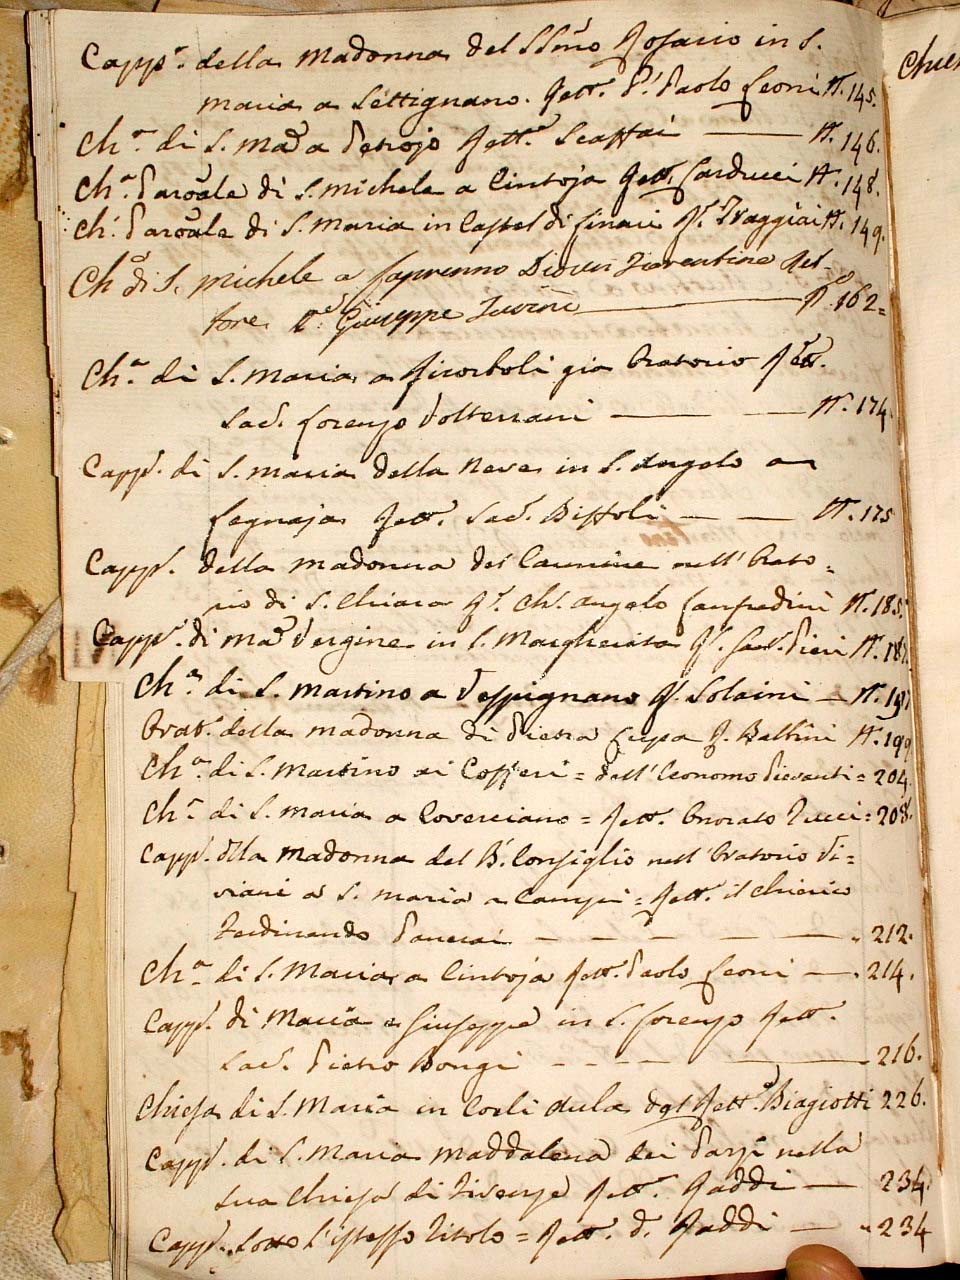 Capp.ª della Madonna del SSmo Rosario in S.
Maria a Settignano. Rett.e P. Paolo Leoni N. 145.
Ch.ª di S. Maª a Petrojo Rett.e Scaffai N. 146.
Ch.ª Paroãle di S. Michele a Cintoja Rett. Carducci N. 148.
Ch.ª Paroãle di S. Maria in Castel di Signa R.e N. 149.
Chª di S. Michele a Diocesi Fiorentina Ret-
tore Giuseppe N. 162=
Ch.ª di S. Maria a Ricorboli già Oratorio Rett.
Sac. Lorenzo Volterrani N. 174.
Capp.ª di S. Maria della Neve in S. Angelo a
Legnaja Rett.e Sac. Biffoli N. 175
Capp.ª della Madonna del Carmine nell' Orato=
rio di S. Chiara R.e Angelo Lanfredini N. 185.
Capp.ª di Maª Vergine in S. Margherita R.e Sac. Pieri N.
Ch.ª di S. Martino a Vespignano R. Solaini N. 197
Orat.o della Madonna di Pietra R. Bettini N. 199
Ch.ª di S. Martino ai Cofferi = dall' Economo Pievanti = 204
Ch.ª di S. Maria a Coverciano = Rett.e Onorato Pucci = 208.
Capp.ª dlla Madonna del B. Consiglio nell' Oratorio Vi=
viani a S. Maria a Campi = Rett.e il Chierico
Ferdinando Panerai 212.
Ch.ª di S. Maria a Cintoja Rett.e Paolo Leoni 214.
Capp.ª di Maria e Giuseppe in S. Lorenzo Rett.e
Sac. Pietro Bongi 216.
Chiesa di S. Maria in Rett.e Biagiotti 226.
Capp.ª di S. Maria Maddalena dei Pazzi nella
sua Chiesa di Firenze Rett.e Gaddi 234.
Capp.ª sotto l'istesso Titolo = Rett. d. Gaddi = 234